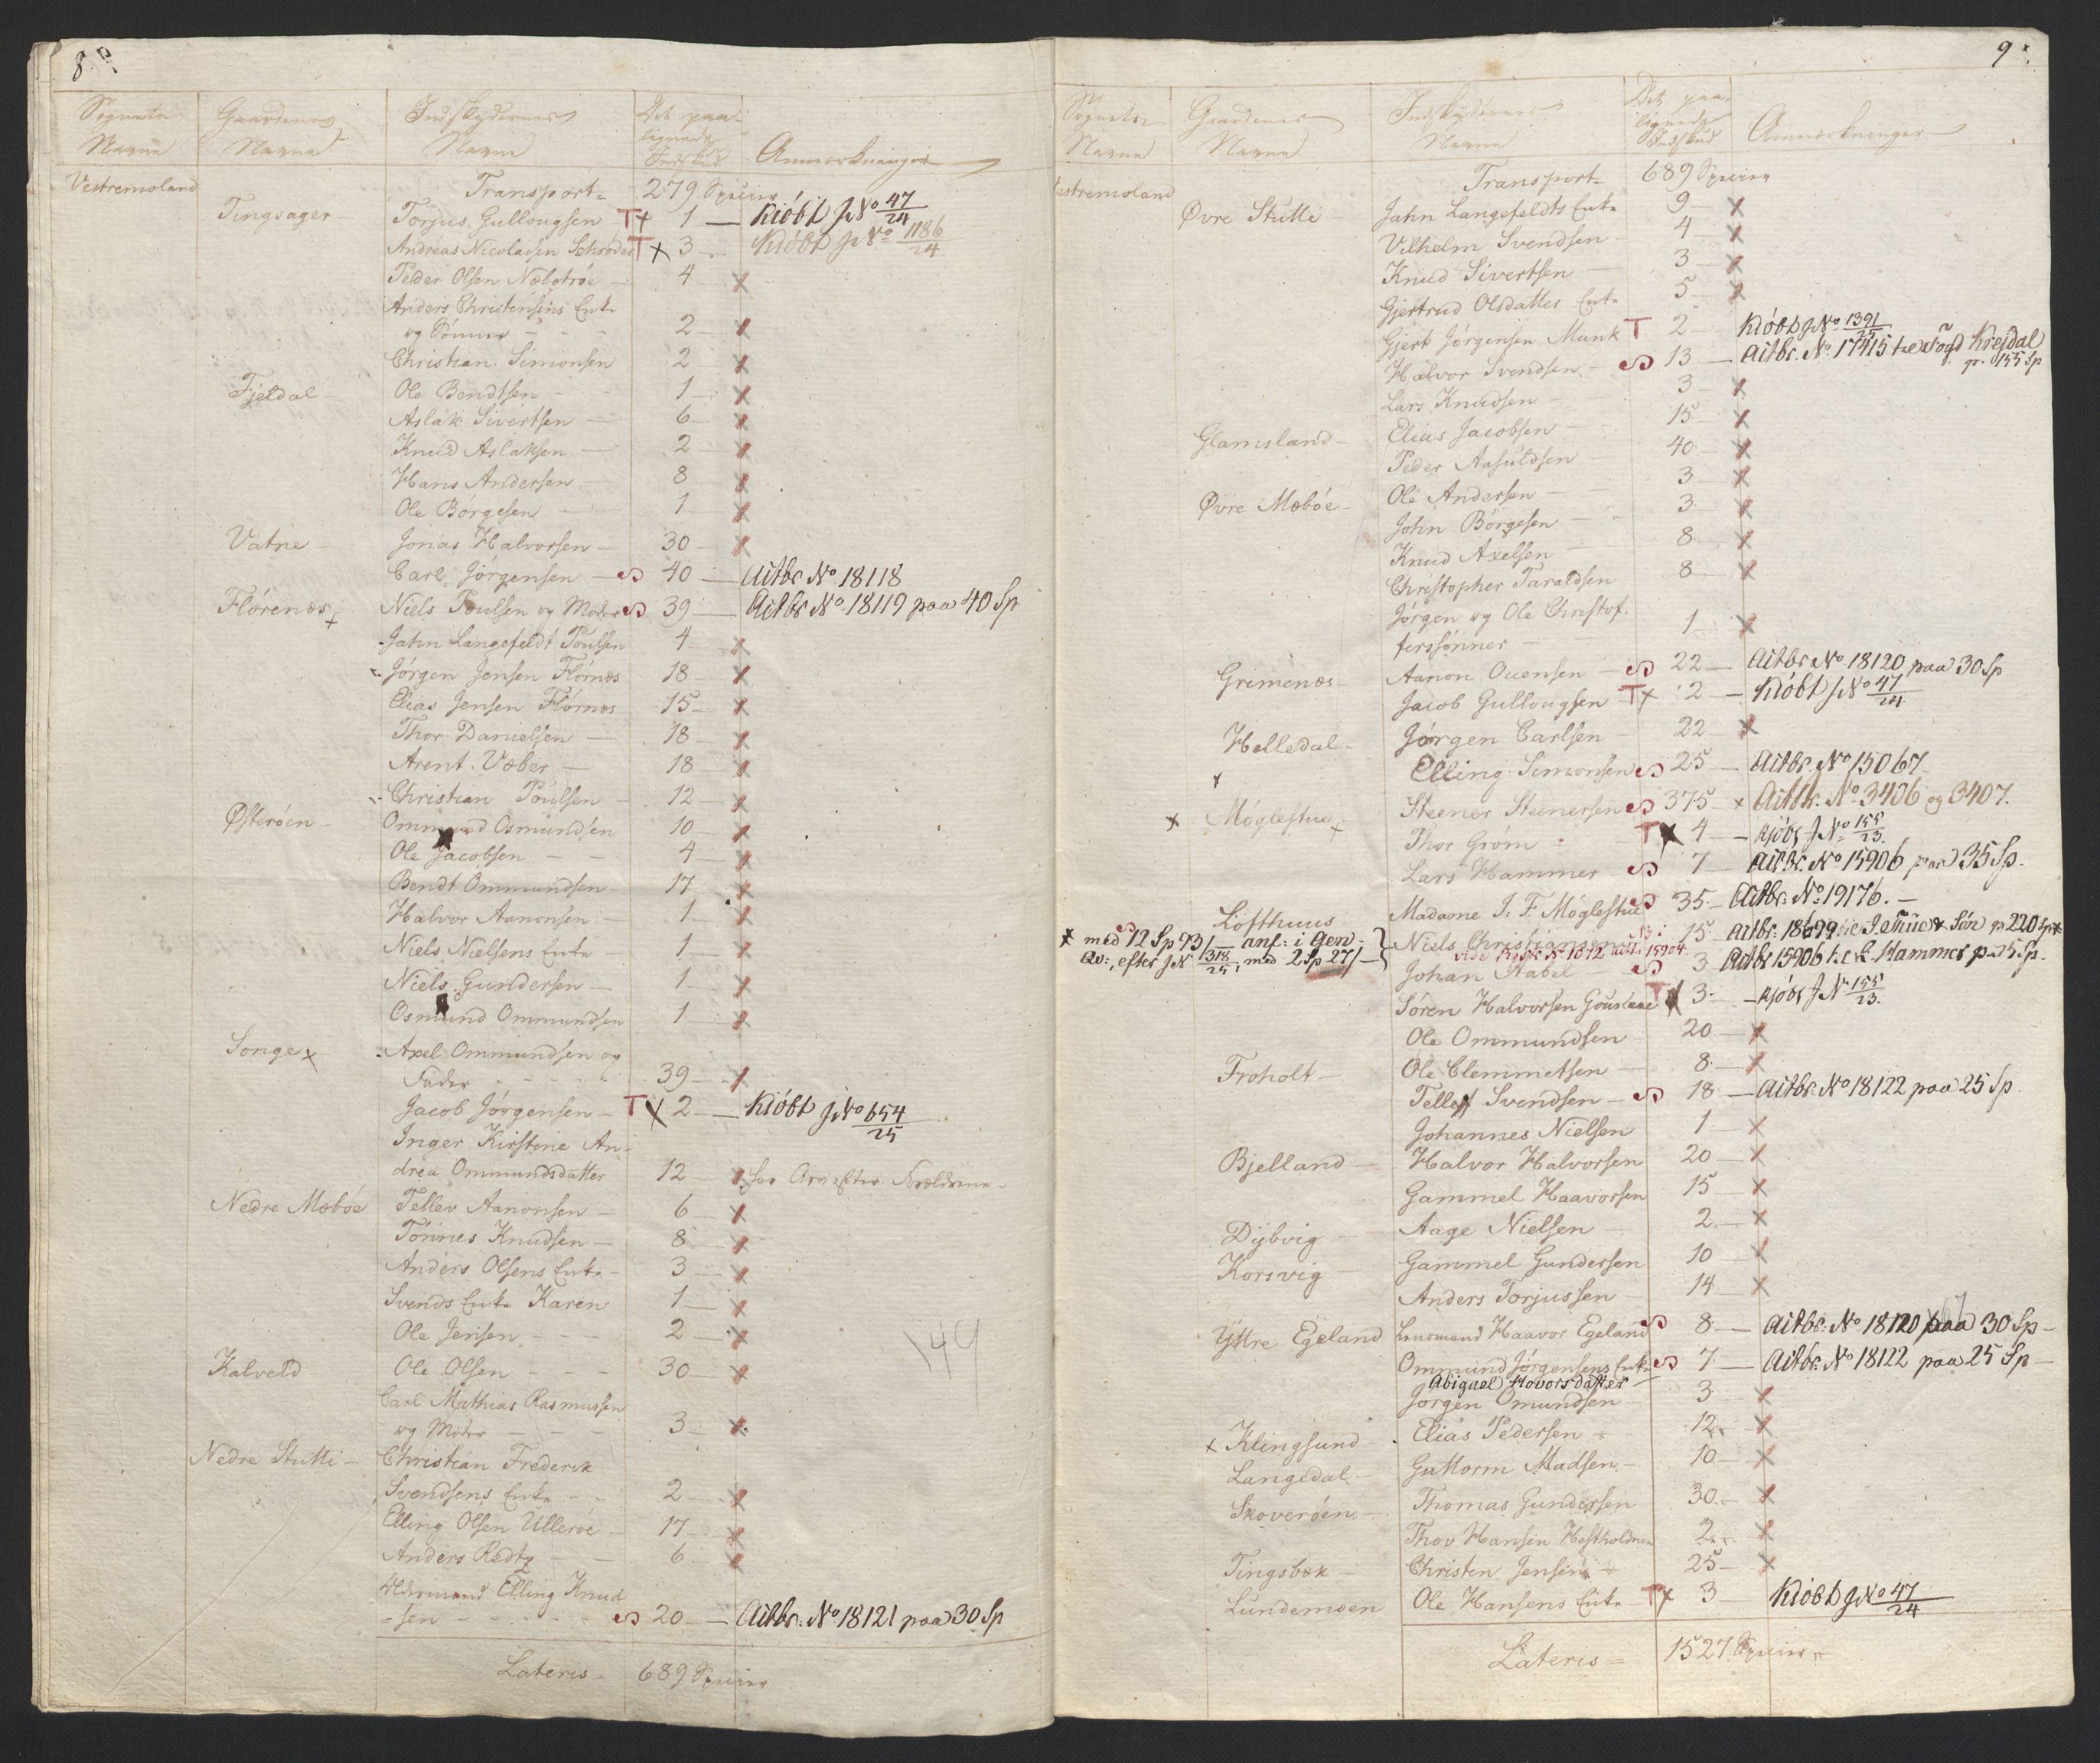 8
Sognets Navne | Gaardenes Navne | Indskydernes Navne | Det paalignede Indskud | Anmærkninger
Vestremoland | Transport | 279 Specier
Tingsager | Torjus Gullougsen | T+ 1 — Kióbt J No 47/24
Andreas Nicolaisen Schrøder | T x 3 Kióbt J No 1186/24
Peder Olsen Næbstróe | 4 x
Anders Christensens Enke
og Sónner | 2 x
Christian Simonsen | 2 x
Fjeldal | Ole Bendtsen | 1 x
Aslak Sivertsen | 6 x
Knud Aslaksen | 2 x
Hans Andersen | 8 x
Ole Børgesen | 1 x
Vatne | Jonas Halvorsen | 30 x
Carl Jørgensen | 40 — Actbr No 18118
Flórenæs x | Niels Poulsen og Moder | 39 — Actbr No 18119 paa 40 Sp
Jahn Langefeldt Poulsen | 4 x
Jørgen Jensen Flórnæs | 18 x
Elias Jensen Flórnæs | 15 x
Thor Danielsen | 18 x
Arent Væber | 18 x
Christian Poulsen | 12 x
Østerøen | Ommund Osmundsen | 10 x
Ole Jacobsen | 4 x
Bendt Ommundsen | 17 x
Halvor Aanonsen | 1 x
Niels Nielsens Enke | 1 x
Niels Gundersen | 1 x
Osmund Ommundsen | 1 x
Songe x | Axel Ommundsen og
Fader | 39 x
Jacob Jørgensen | T x 2 — Kióbt J No 654/25
Inger Kirstine An-
drea Ommundsdatter | 12 x har Arv efter Forældrene
Nedre Mæbøe | Tellev Aanonsen | 6 x
Tønnes Knudsen | 8 x
Anders Olsens Enke | 3 x
Svends Enke Karen | 1 x
Ole Jensen | 2 x
149
Kalveld | Ole Olsen | 30 x
Carl Mathias Rasmussen
og Moder | 3 x
Nedre Stutti | Christian Frederik
Svendsens Enke | 2 x
Elling Olsen Ullerøe | 17 x
Anders Redtz | 6 x
Oldermand Elling Knud
=sen | 20 — Actbr. No 18121 paa 30 Sp
Lateris | 689 Specier
9
Sognets Navne | Gaardenes Navne | Indskydernes Navne | Det paalignede Indskud | Anmærkninger
Vestremoland | Transport | 689 Specier
Øvre Stutti | Jahn Langefeldts Enke | 9 x
Vilhelm Svendsen | 4 x
Knud Sivertsen | 3 x
Gjertrud Olsdatter Enke | 5 x
Gjert Jørgensen Munk | T 2 — Kióbt J No 1391/25
Halvor Svendsen | 13 — Actbr. No 17415 Krejdal p. 155 Sp
Lars Knudsen | 3 x
Glamsland | Elias Jacobsen | 15 x
Peder Aasuldsen | 40 x
Øvre Mæbøe | Ole Andersen | 3 x
John Børgesen | 3 x
Knud Axelsen | 8 x
Christopher Taraldsen | 8 x
Jørgen og Ole Christof-
ferssønner | 1 x
Grimenæs | Aanon Ouensen | 22 — Actbr No 18120 paa 30 Sp
Jacob Gullougsen | T x 2 — Kióbt J No 47/24
Helledal | Jørgen Carlsen | 22 x
Elling Simonsen | 25 — Actbr. No 15067
x Móglestue x | Steener Steenersen | 375 x Actbr. No 3406 og 3407.
Thor Grøm | T x 4 — Kjóbt J No 155/23.
Lars Hammer | 7 — Actbr. No 15906 paa 35 Sp.
Lofthuus | Madame I. F. Móglestue | 35 — Actbr. No 19176.
x med 12 Sp 93/— anf: i Gen- | Niels Christiansen | 15 — Actbr. 18699 Søn p 220 Sp x
Qv:, efter J N 1318/25, med 2 Sp 27/— | Johan Stabel | 3 Actbr 15906 Hammer p. 35 Sp.
Søren Halvorsen | T x 3 — Kjóbt J No 155/23.
Ole Ommundsen | 20 x
Froholt | Ole Clemmetsen | 8 x
Tellef Svendsen | 18 — Actbr. No 18122 paa 25 Sp
Johannes Nielsen | 1 x
Bjelland | Halvor Halvorsen | 20 x
Gammel Haavorsen | 15 x
Dybvig | Aage Nielsen | 2 x
Korsvig | Gammel Gundersen | 10 x
Anders Torjussen | 14 x
Yttre Egeland | Lensmand Haavor Egeland | 8 — Actbr. No 18120 paa 30 Sp
Ommund Jørgensens Enke | 7 — Actbr. No 18122 paa 25 Sp
Abiguel Hovorsdatter
Jørgen Omundsen | 3 x
x Klingsund | Elias Pedersen | 12 x
Langedal | Guttorm Madsen | 10 x
Skoverøen | Thomas Gundersen | 30 x
Thov Hansen Hestholmen | 2 x
Tingsbæk | Christen Jensen | 25 x
Lundemoen | Ole Hansens Enke | T x 3 Kióbt J No 47/24
Lateris = | 1527 Specier